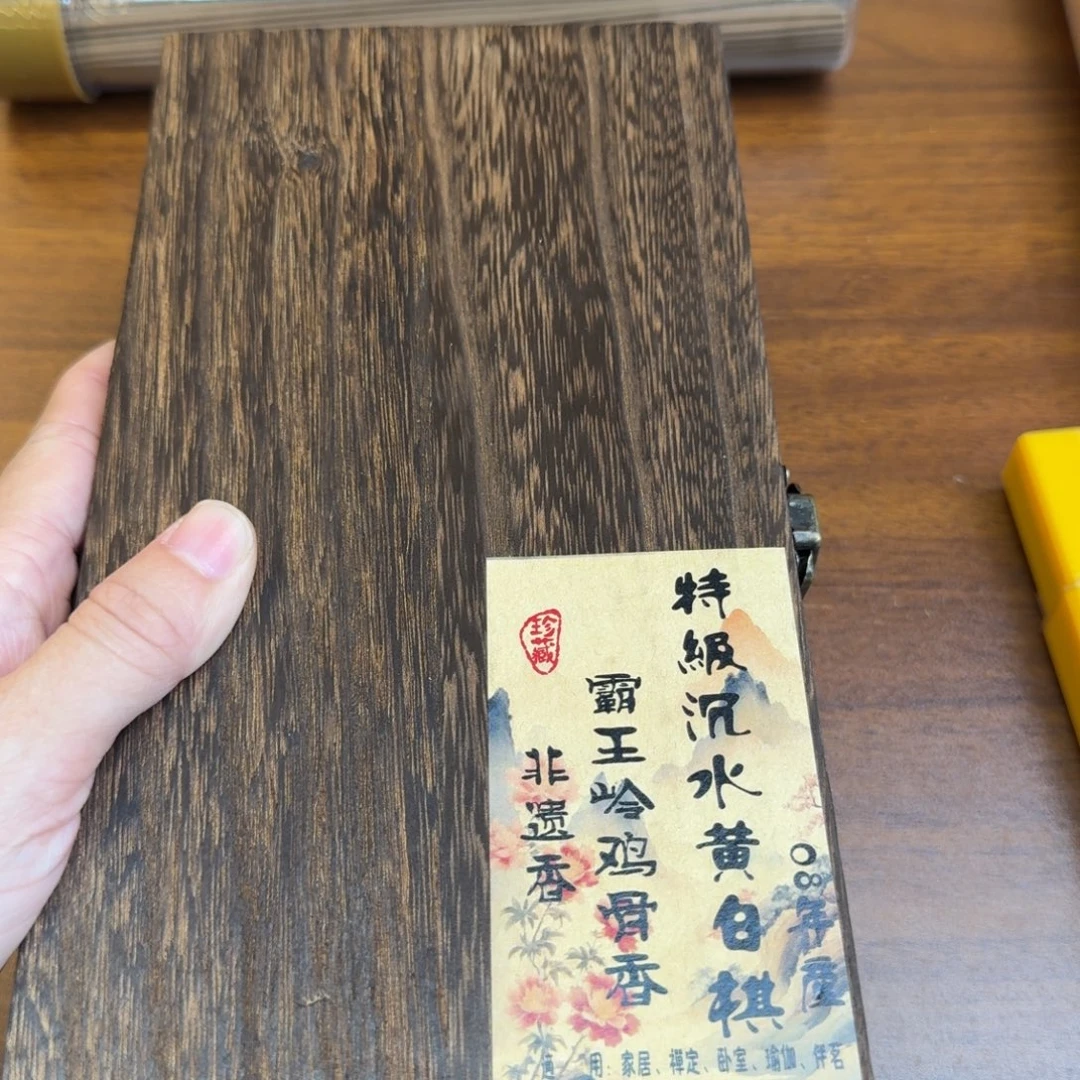 08年产
特級沉水黄白棋
霸王岭鸡骨香
非遗香
珍藏
适用：家居、禅定、卧室、瑜伽、伴茗